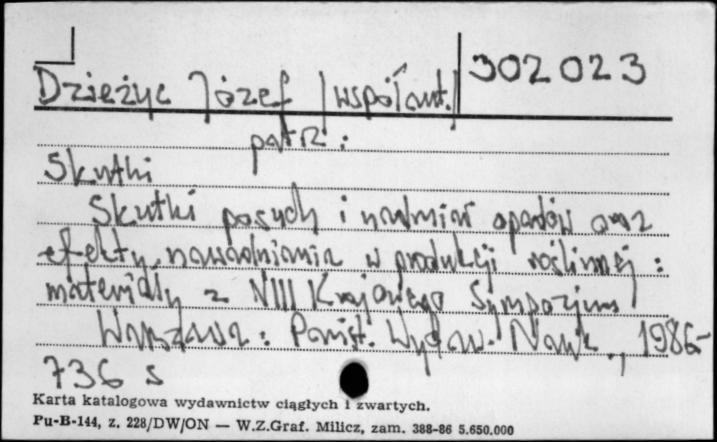 302023
Dzieżyc Józef /współaut./
patrz:
Skutki
Skutki posuch i nadmiar opadów oraz
efekty nawadniania w produkcji roślinnej:
materiały z VIII Krajowego Sympozjum
Warszawa: Państ. Wydaw. Nauk., 1986.-
736 s
Karta katalogowa wydawnictw ciągłych i zwartych.
Pu-B-144, z. 228/DW/ON — W.Z.Graf. Milicz, zam. 388-86 5.650.000